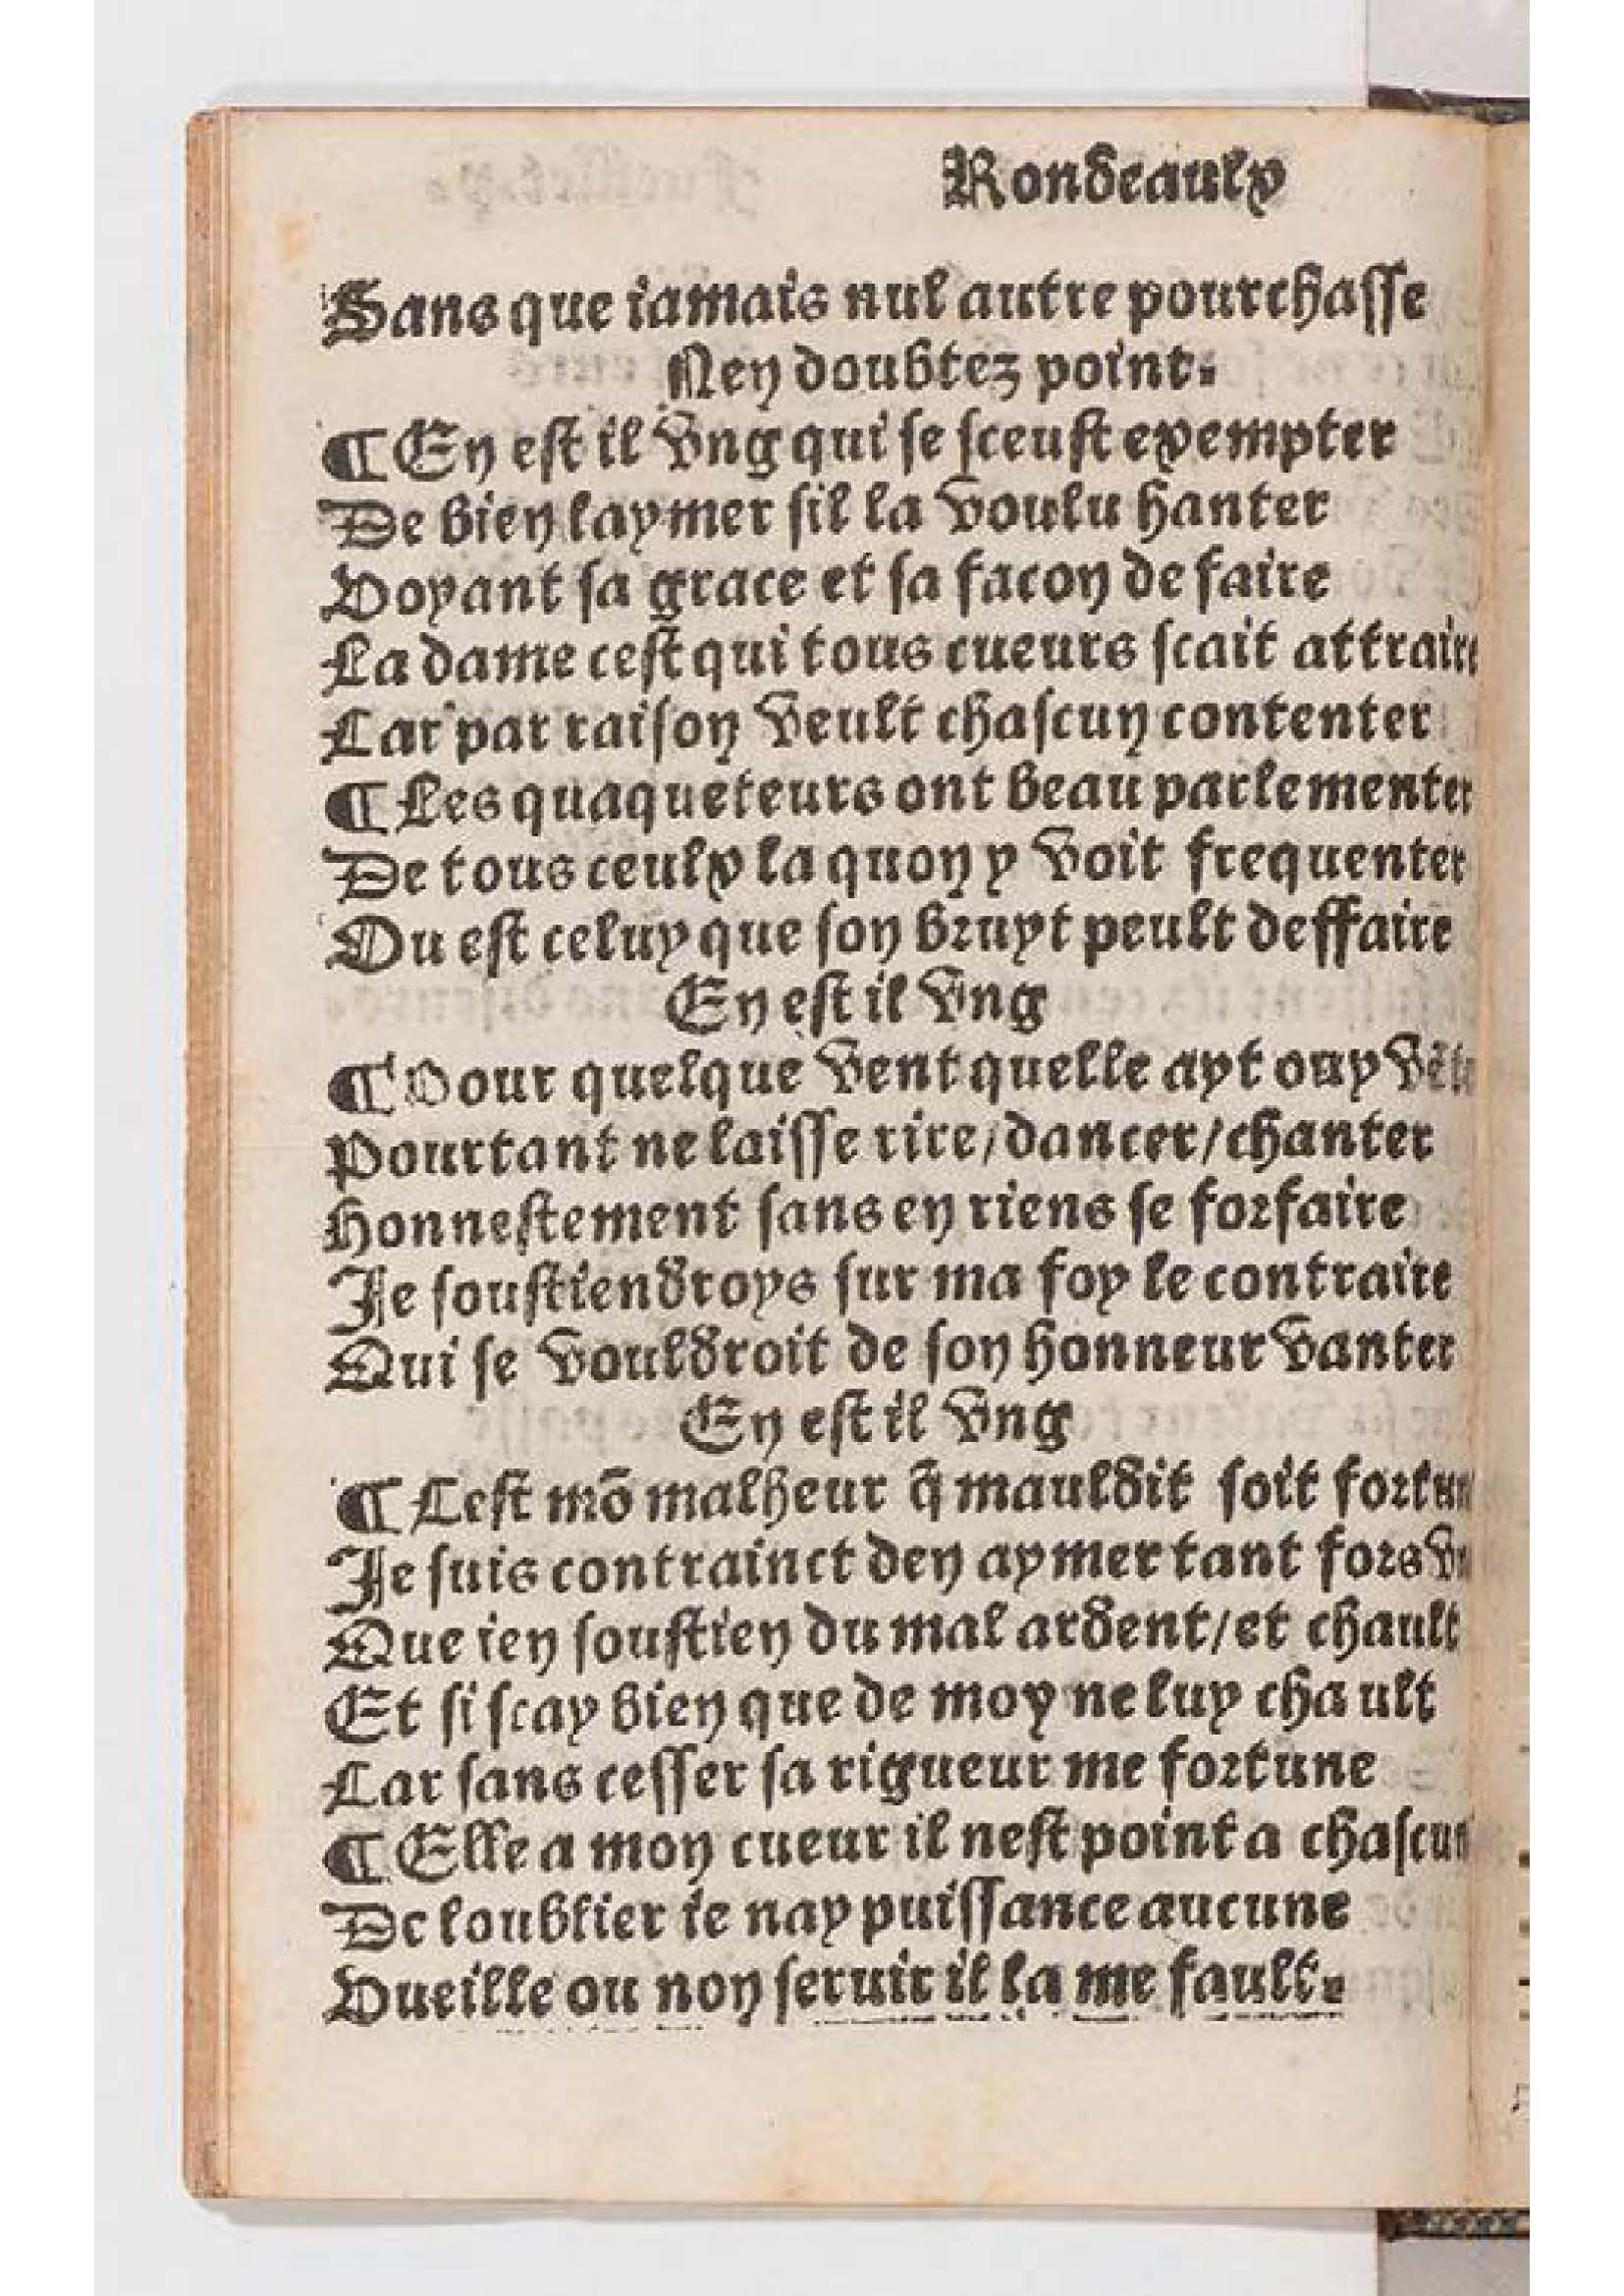 Rondeaulx
Sans que iamais nul autre pourchasse
Ney doubtez point.
¶ En est il vng qui se sceust exempter
De bien laymer sil la voulu hanter
Voyant sa grace et sa facon de faire
La dame cest qui tous cueurs scait attraire
Car par raison veult chascun contenter
¶ Les quaqueteurs ont beau parlementer
De tous ceulx la quon y voit frequenter
Ou est celuy que son bruyt peult deffaire
En est il vng
¶ Pour quelque vent quelle ayt ouy
Pourtant ne laisse rire/dancer/chanter
Honnestement sans en riens se forfaire
Je soustiendroys sur ma foy le contraire
Qui se vouldroit de son honneur vanter
En est il vng
¶ Cest mõ malheur q̃ mauldit soit
Je suis contrainct den aymer tant fors
Que ien soustien du mal ardent/et chault
Et si scay bien que de moy ne luy chault
Car sans cesser sa rigueur me fortune
¶ Elle a mon cueur il nest point a chascun
De loublier ie nay puissance aucune
Vueille ou non seruir il la me fault.